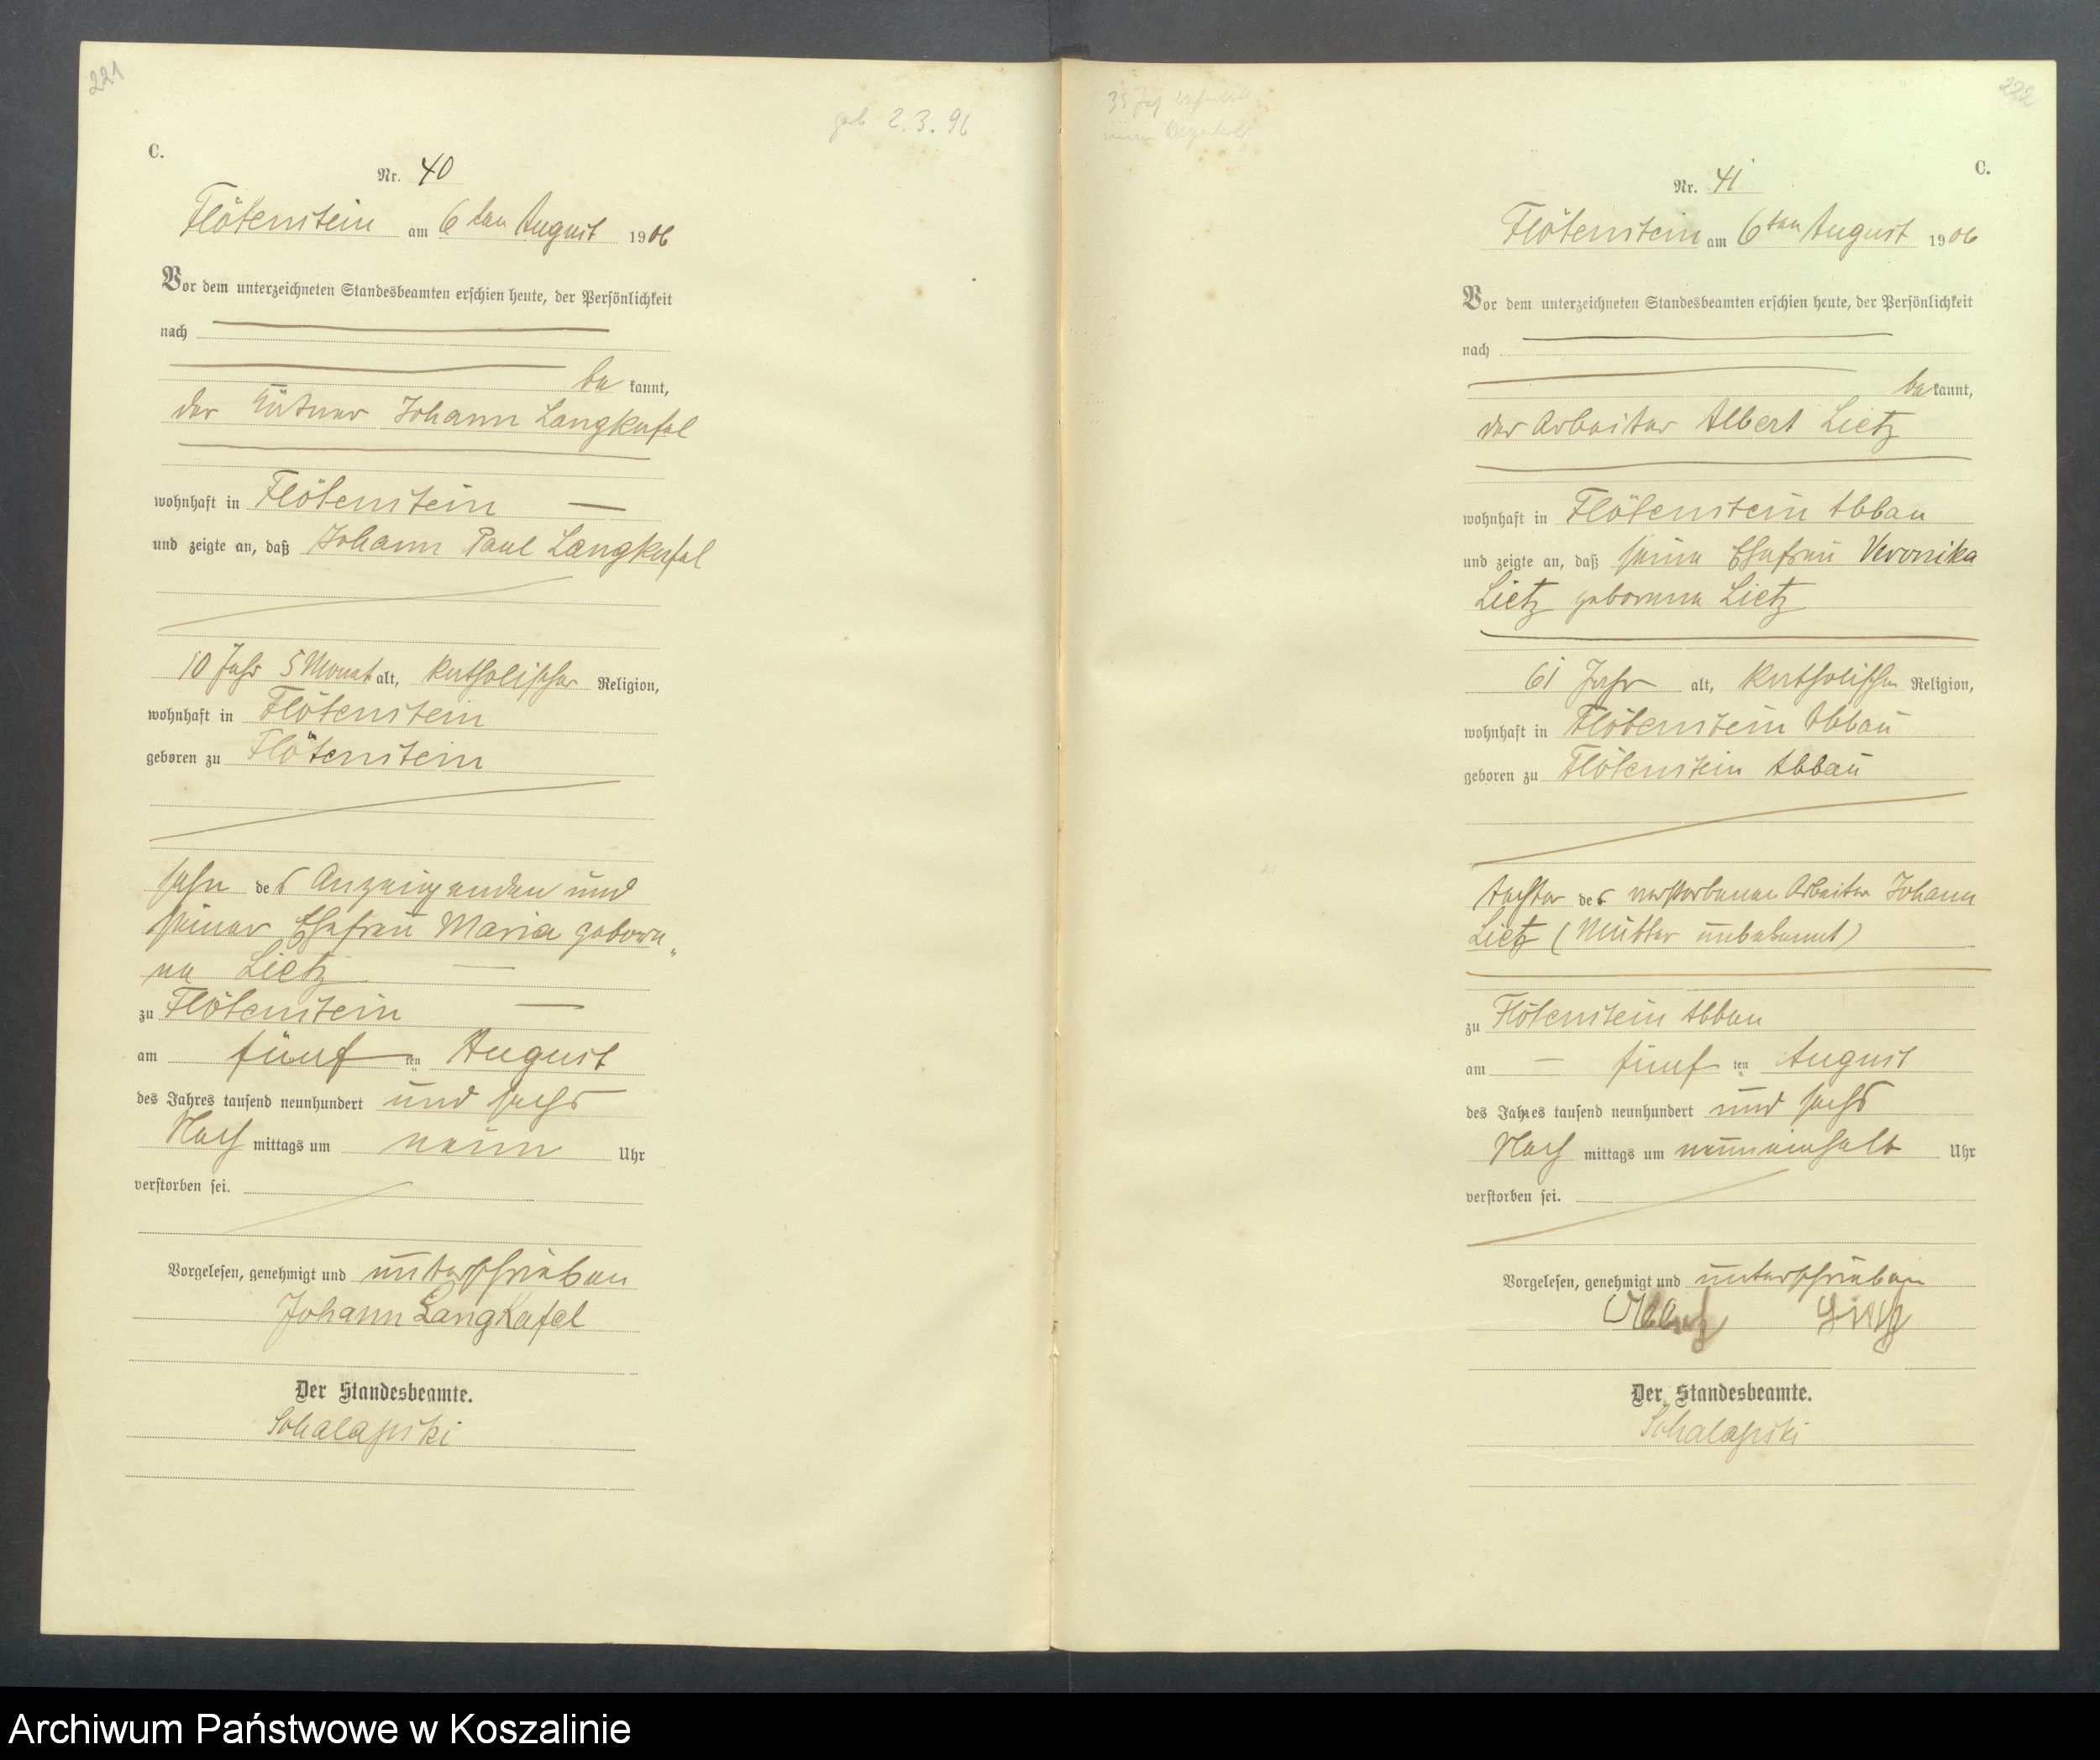 221
geb 2.3.96
C.
Nr. 40
Flötenstein am 6ten August 1906
Vor dem unterzeichneten Standesbeamten erschien heute, der Persönlichkeit
nach
be kannt,
der Johann Langkafel
wohnhaft in Flötenstein
und zeigte an, daß Johann Paul Langkafel
10 Jahr 5 Monat alt, katholischer Religion,
wohnhaft in Flötenstein
geboren zu Flötenstein
Sohn des Anzeigenden und
seiner Ehefrau Maria gebore„
ne Lietz
zu Flötenstein
am fünf ten August
des Jahres tausend neunhundert und sechs
Nach mittags um neun Uhr
verstorben sei.
Vorgelesen, genehmigt und unterschrieben
Johann Langkafel
Der Standesbeamte.
222
C.
Nr. 41
Flötenstein am 6ten August 1906
Vor dem unterzeichneten Standesbeamten erschien heute, der Persönlichkeit
nach
be kannt,
der Arbeiter Albert Lietz
wohnhaft in Flötenstein Abbau
und zeigte an, daß seine Ehefrau Veronika
Lietz geborene Lietz
61 Jahr alt, katholischer Religion,
wohnhaft in Flötenstein Abbau
geboren zu Flötenstein Abbau
Tochter des verstorbenen Arbeiter Johann
Lietz (Mutter unbekannt)
zu Flötenstein Abbau
am fünf ten August
des Jahres tausend neunhundert und sechs
Nach mittags um neuneinhalb Uhr
verstorben sei.
Vorgelesen, genehmigt und unterschrieben
Albert Lietz
Der Standesbeamte.
Archiwum Państwowe w Koszalinie